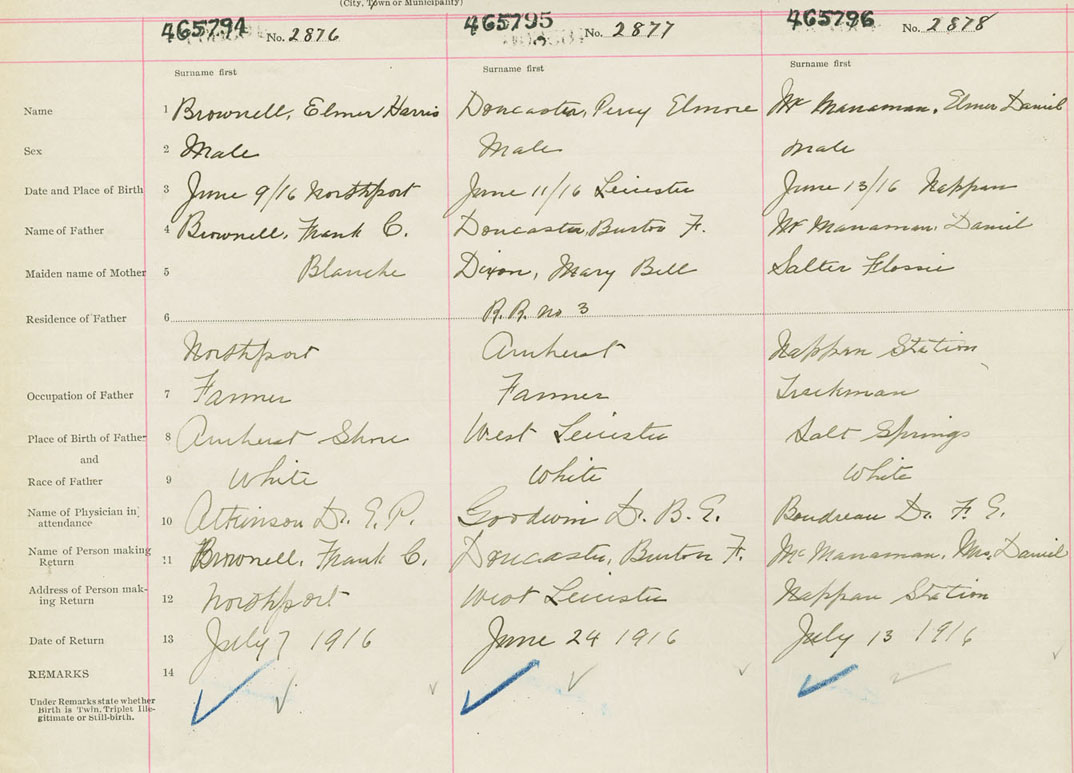 (City, Town or Municipality)
465794 No. 2876 465795 No. 2877 465796 No. 2878
Surname first Surname first Surname first
Name 1 Brownell, Elmer Harris Doncaster, Percy Elmore Mc Manaman, Elmer Daniel
Sex 2 Male Male Male
Date and Place of Birth 3 June 9/16 Northport June 11/16 Leicester June 13/16 Nappan
Name of Father 4 Brownell, Frank C. Doncaster, Burton F. Mc Manaman, Daniel
Maiden name of Mother 5 Blanche Dixon, Mary Bell Salter Flossie
Residence of Father 6 R. R. no 3
Northport Amherst Nappan Station
Occupation of Father 7 Farmer Farmer Trackman
Place of Birth of Father 8 Amherst Shore West Leicester Salt Springs
and
Race of Father 9 White White White
Name of Physician in attendance 10 Atkinson Dr. E. P. Goodwin Dr. B. E. Boudreau Dr. F. E.
Name of Person making Return 11 Brownell, Frank C. Doncaster, Burton F. Mc Manaman, Mrs. Daniel
Address of Person making Return 12 Northport West Leicester Nappan Station
Date of Return 13 July 7 1916 June 24 1916 July 13 1916
REMARKS 14
Under Remarks state whether
Birth is Twin, Triplet Ille-
gitimate or Still-birth.